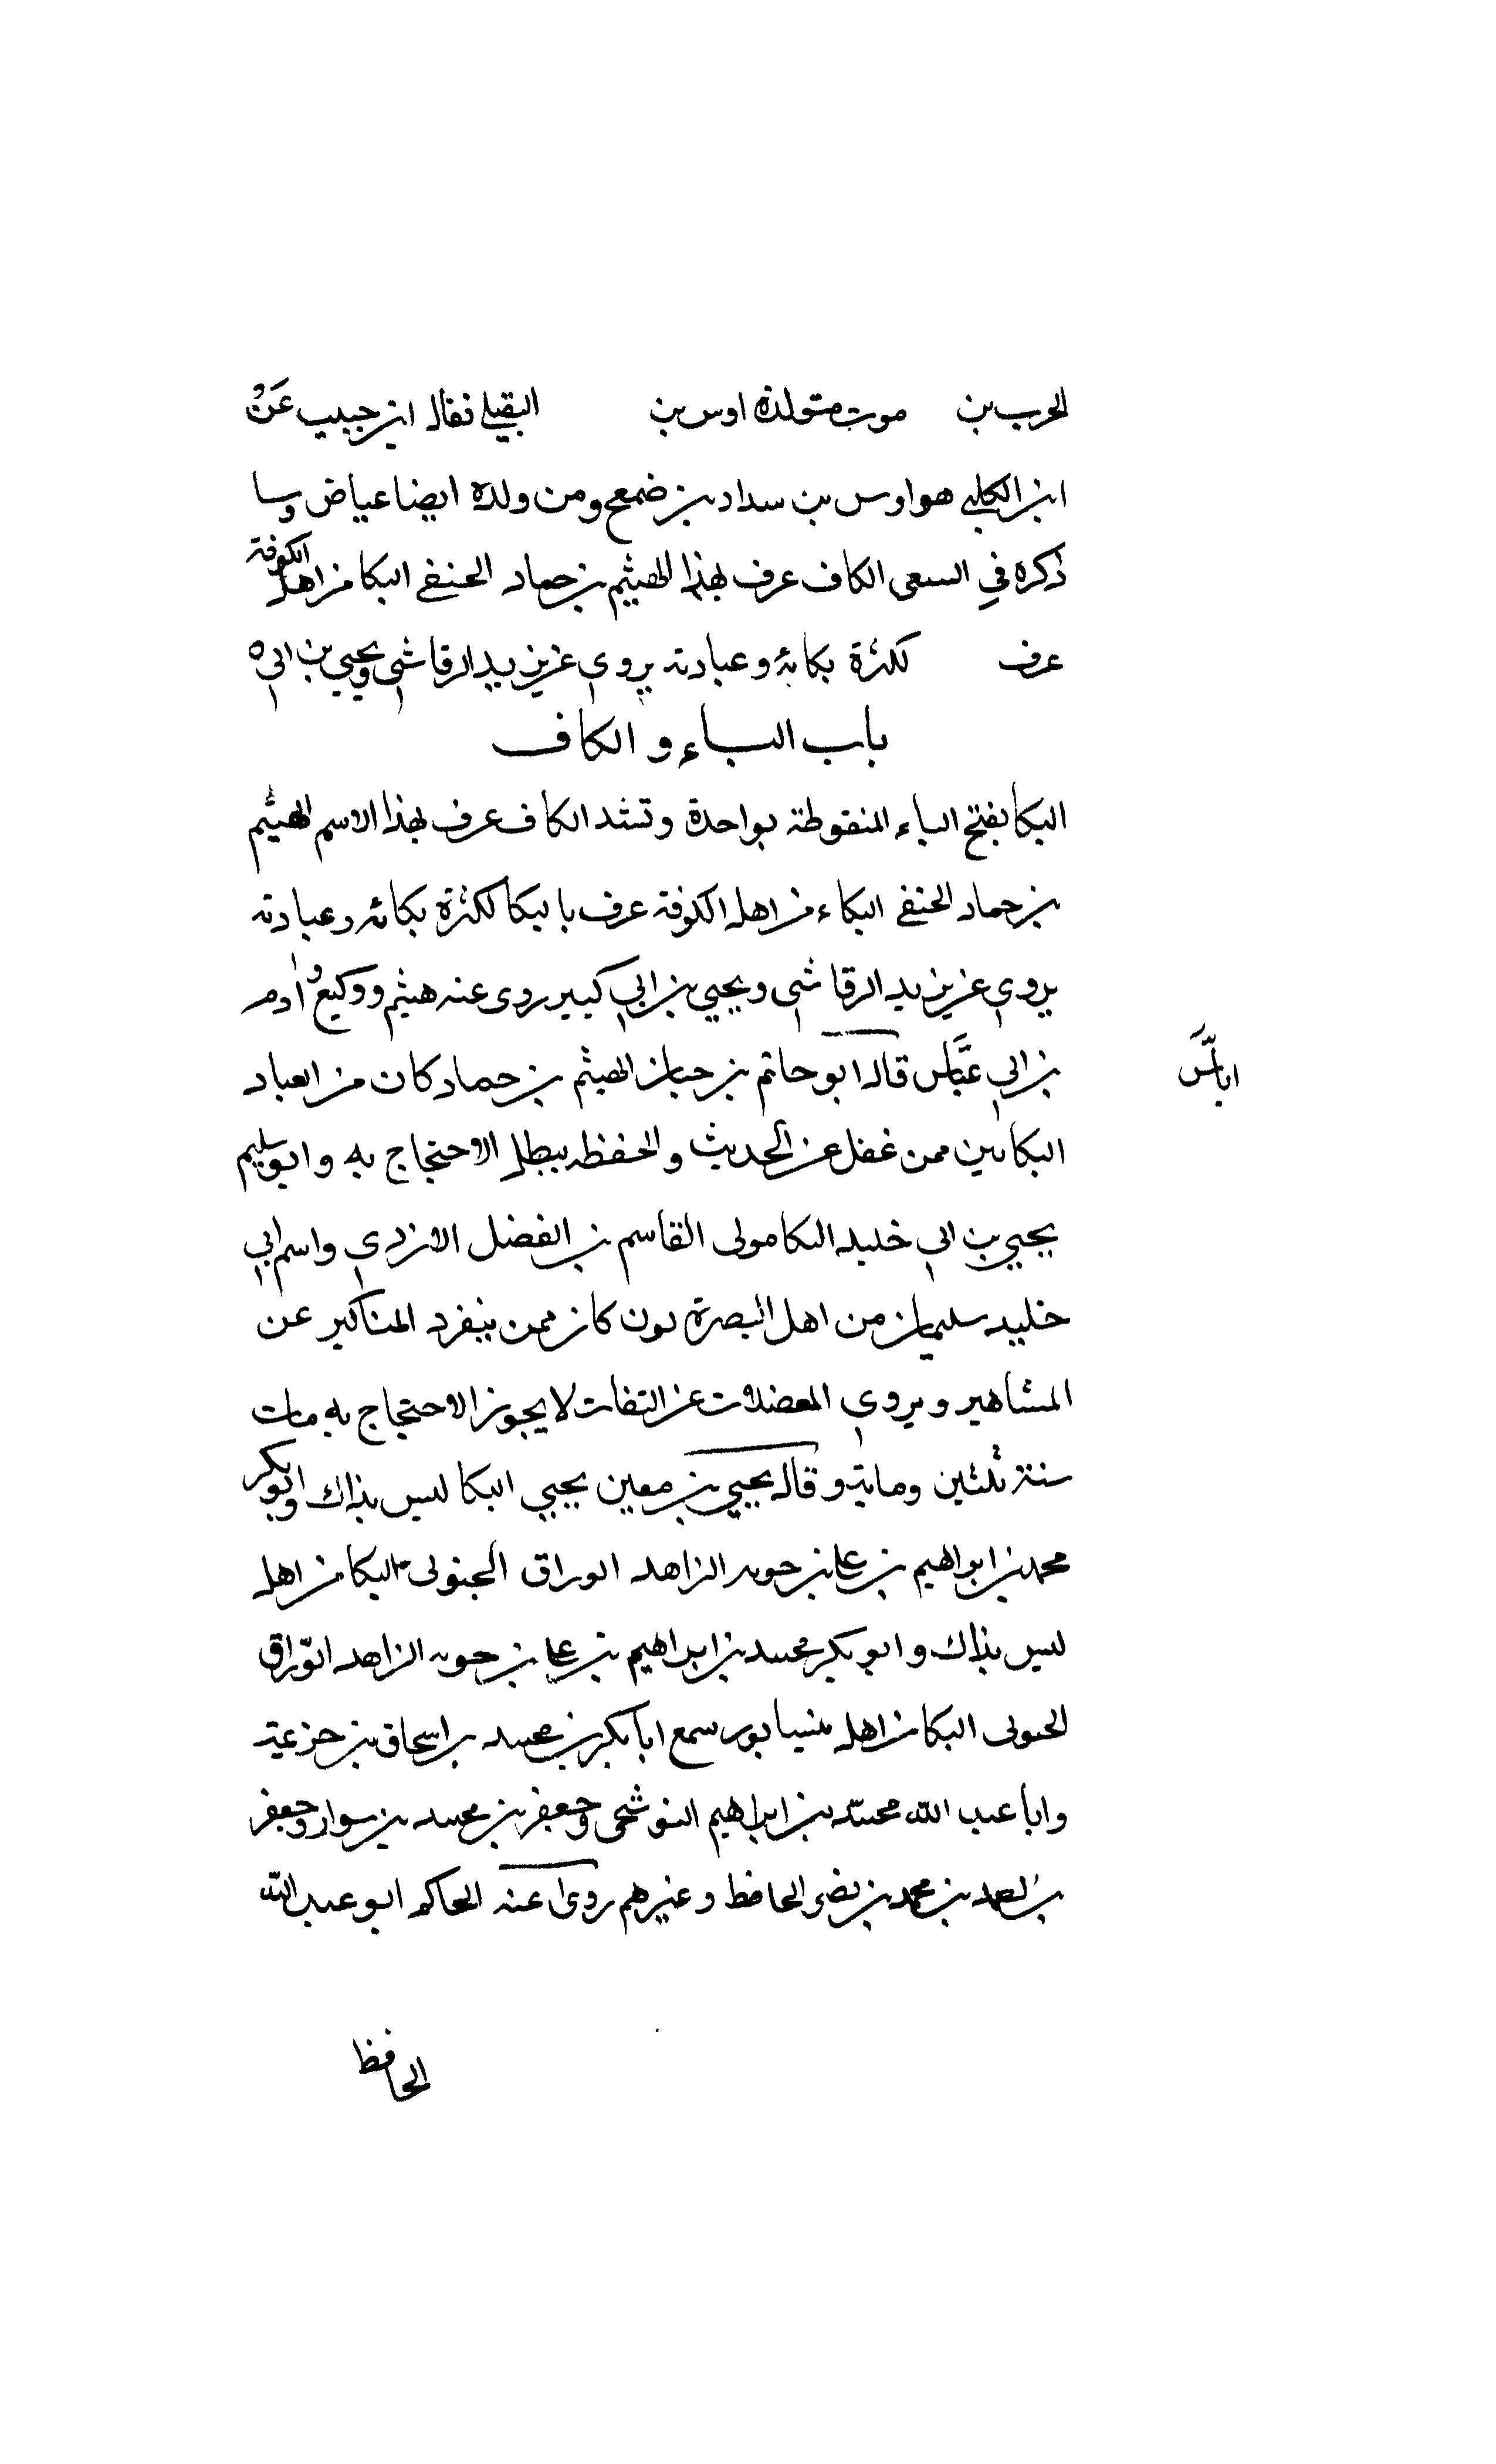 الحرب بن موت متولده اوس بن البقيلي فقال ابن حبيب عَنْ
ابن الكلبي هو اوس بن سداد بن ضمعج ومن ولده ايضا عياض وسيا
ذكره في السعى الكاف عرف بهذا الهيثم بن حماد الحنفي البكا من اهل الكوفة
عرف لكثرة بكائه وعبادته يروي عن يزيد الرقاشي ويحيي بن ابي
باب الباء والكاف
البكا بفتح الباء المنقوطة بواحدة وتشد الكاف عرف بهذا الاسم الهيثم
بن حماد الحنفي البكاء من اهل الكوفة عرف بالبكا لكثرة بكائه وعبادته
يروي عن يزيد الرقاشي ويحيي بن ابي كبير روى عنه هيثم ووكيع وادم
بن ابي عبَّاس قال ابو حاتم بن حبان الهيثم بن حماد كان من العباد
اياس
البكائين ممن غفل عن الحديث والحفظ يبطل الاحتجاج به وابو سليم
يحيي بن ابي خليد البكا مولى القاسم بن الفضل الازدي واسم ابي
خليد سليمان من اهل البصرة كان ممن ينفرد المناكير عن
المشاهير ويروي المعضلات عن الثقات لا يجوز الاحتجاج به مات
سنة ثلثين وماية وقال يحيي بن معين يحيي البكا ليس بذاك وابو بكر
محمد بن ابراهيم بن علي بن حويه الزاهد الوراق الجنولى البكا من اهل
ليس بذاك وابو بكر محمد بن ابراهيم بن علي بن حويه الزاهد الورّاق
الحولى البكا من اهل نيسابور سمع ابا بكر بن محمد بن اسحاق بن خزيمة
وابا عبد اللّه محمد بن ابراهيم البوشنجي وجعفر بن محمد بن سوار وجعفر
بن محمد بن نصر الحافظ وغيرهم روى عنه الحاكم ابو عبد اللّه
الحافظ